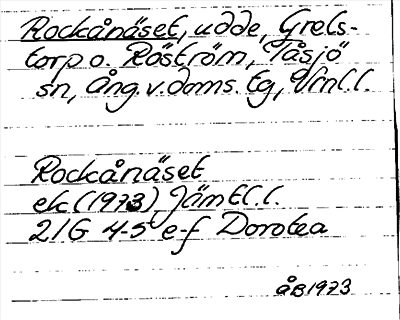 Rockånäset, udde, Grels-
torp o. Röström, Tåsjö
sn, Ång. v. doms. tg, Vrnl.l.
Rockånäset
ek (1973), Jämtl.l.
21G 4-5 e-f Dorotea
ÅB 1973